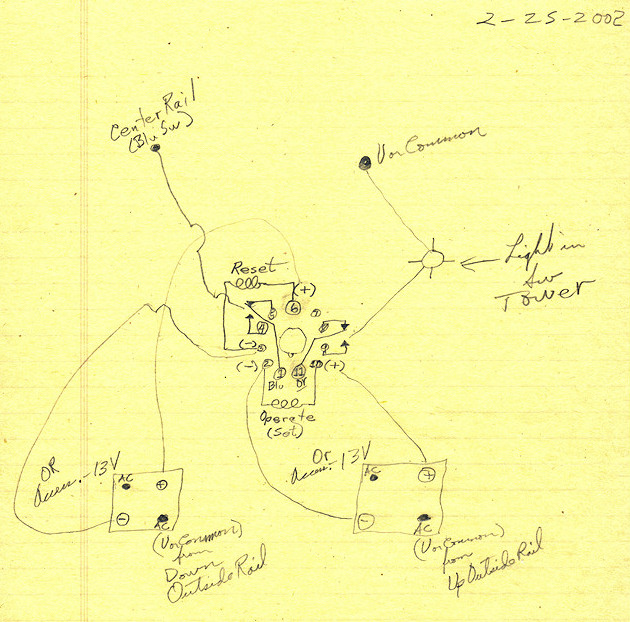 2-25-2002
Center Rail
(Blu Sw)
U or Common
Light in
Sw
Tower
Reset
(+)
5
6
7
4
8
(-)
3
9
(-)
2
1
11
10
(+)
Blu
Or
Operate
(Set)
OR
Access. - 13V
AC
+
-
AC
(U or Common)
from
Down
Outside Rail
Or
Access. - 13V
AC
+
-
AC
(U or Common)
from
Up Outside Rail